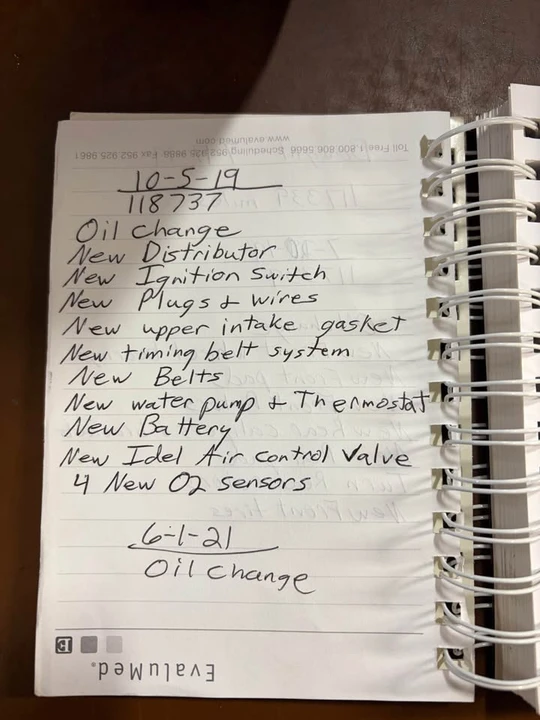 Toll Free 1.800.806.5606 Scheduling 952.925 Fax 952.925.9861
www.evalumed.com
10-5-19
118737
Oil change
New Distributor
New Ignition Switch
New Plugs & wires
New upper intake gasket
New timing belt system
New Belts
New water pump & Thermostat
New Battery
New Idel Air control Valve
4 New O2 sensors
6-1-21
Oil Change
EvaluMed®